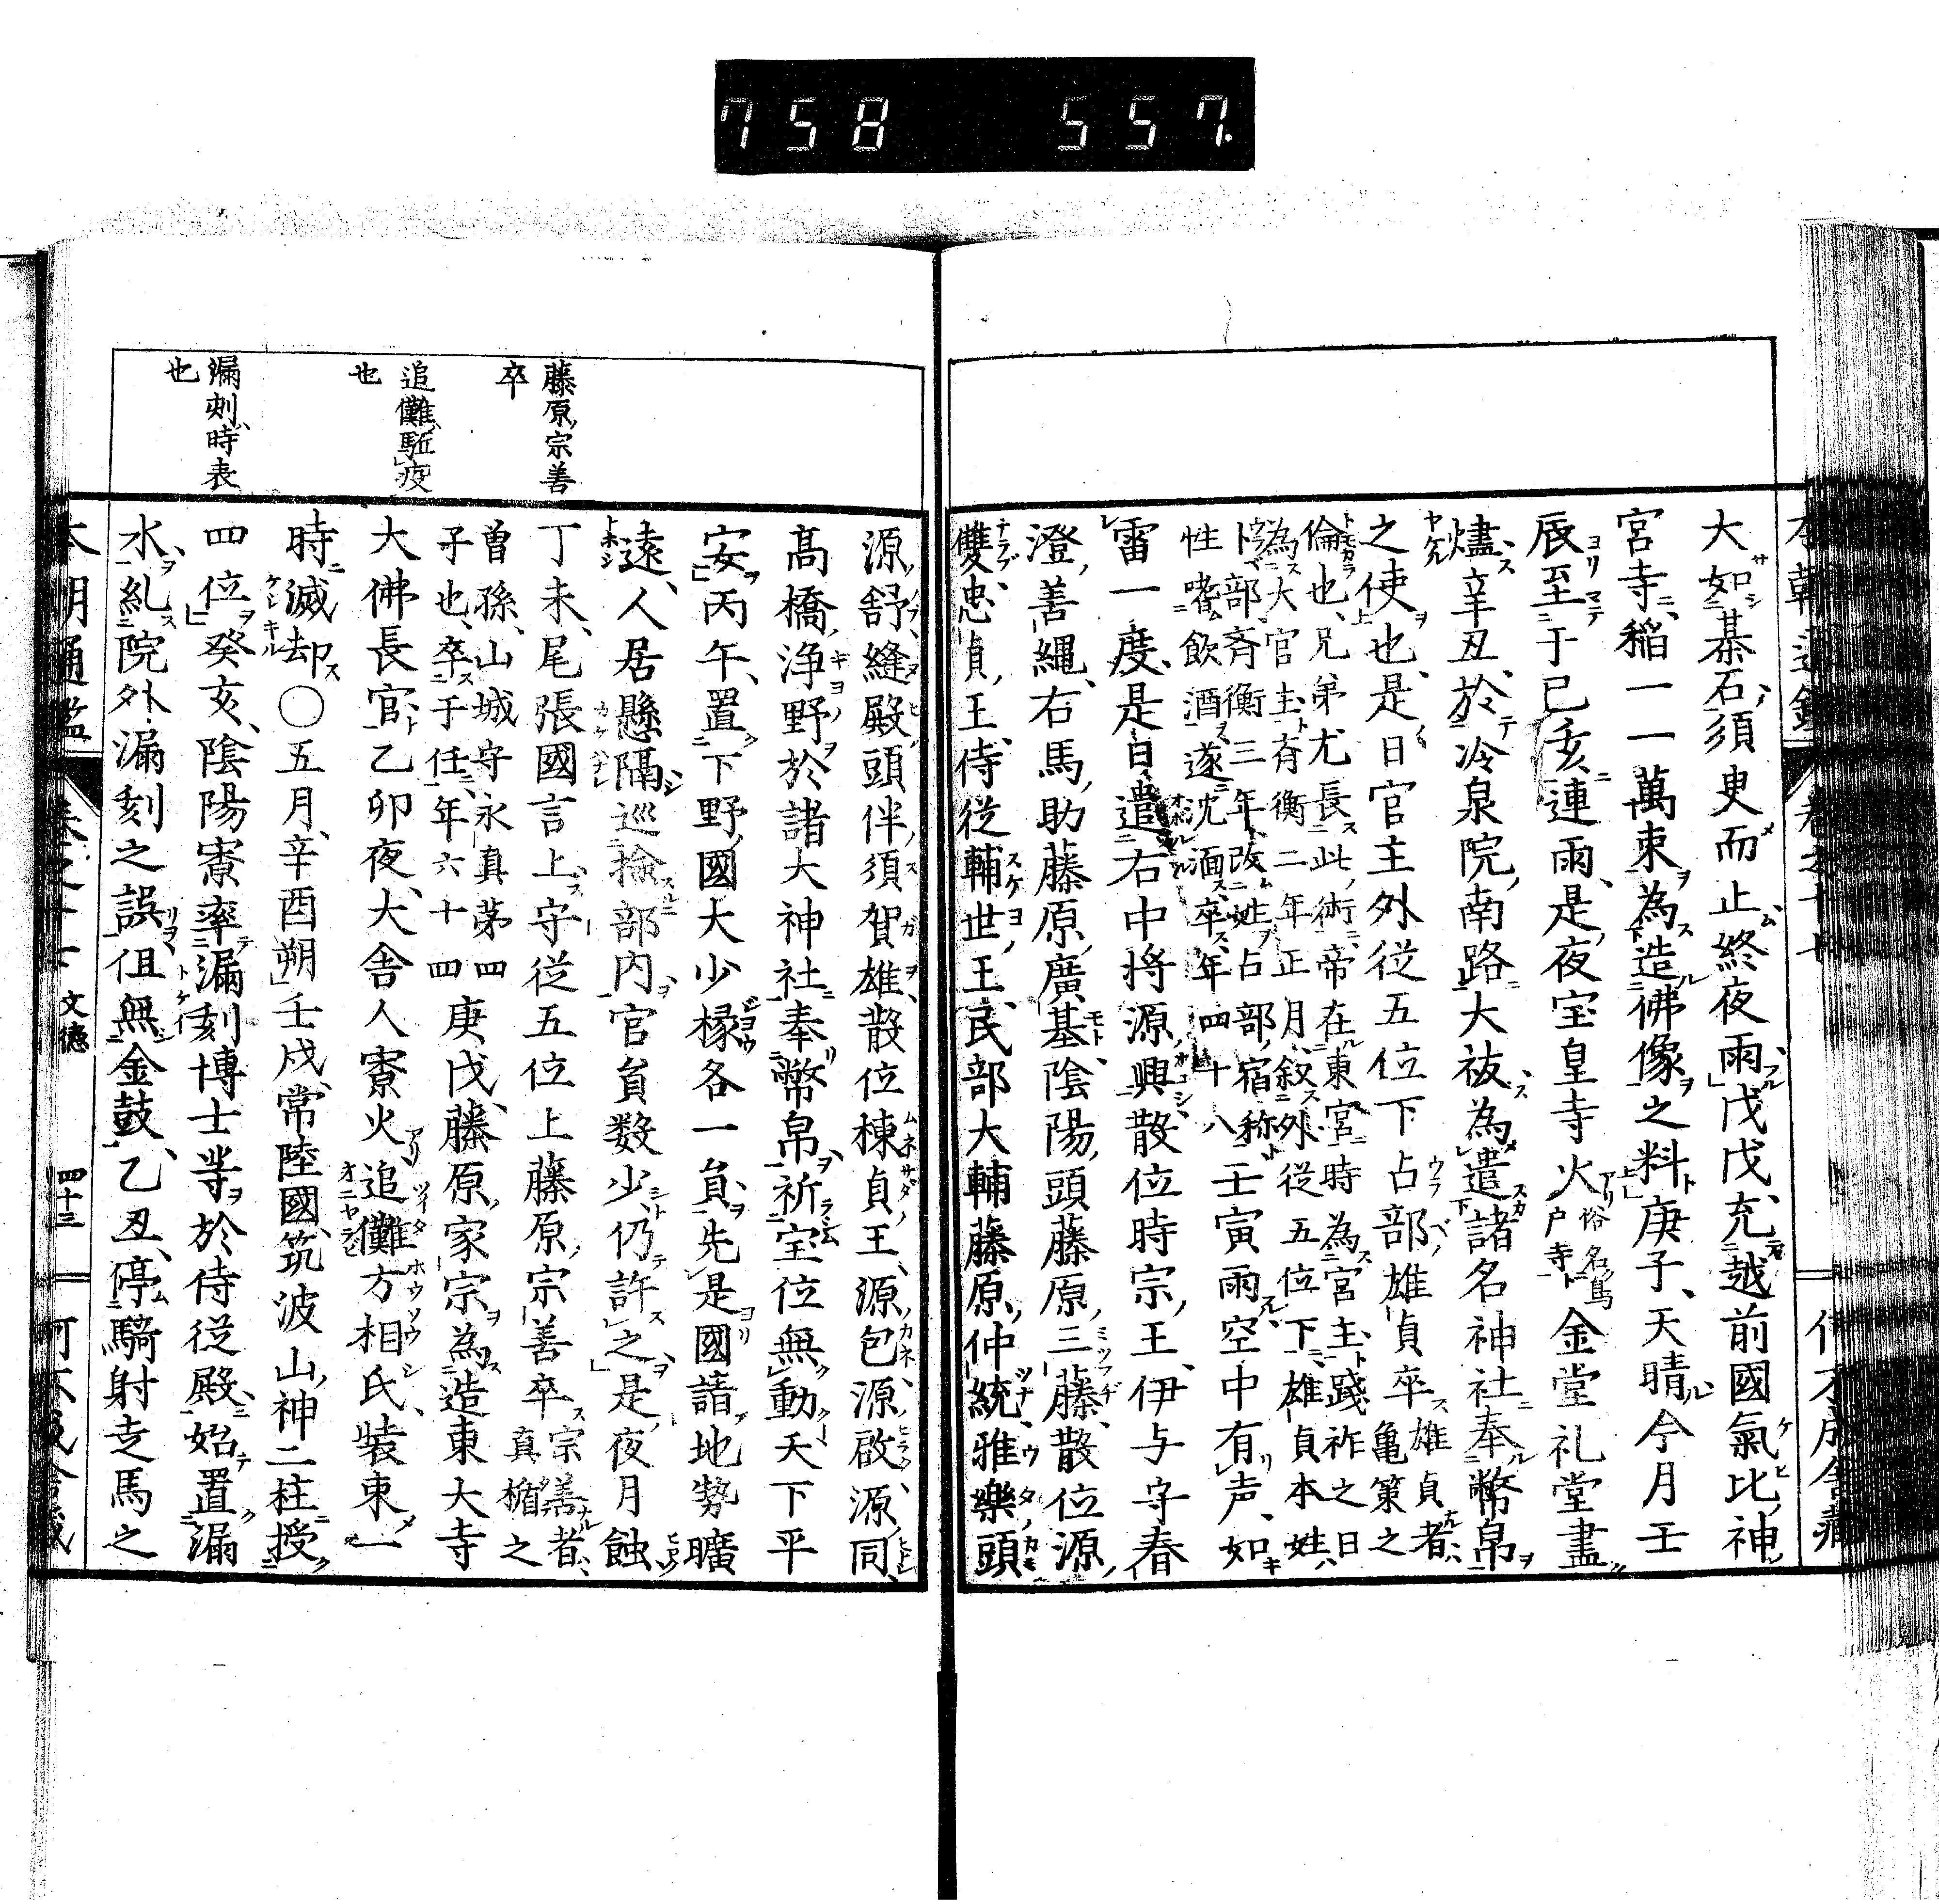 758 557.
大如棊石須臾而止終夜雨戊戌充越前國氣比神
宮寺稲一一萬束為造佛像之料庚子天晴今月壬
辰至于己亥連雨是夜宝皇寺火俗名鳥戸寺金堂礼堂盡
燼辛丑於冷泉院南路大祓為遣諸名神社奉幣帛
之使也是日官主外従五位下占部雄貞卒雄貞者亀策之
倫也兄弟尤長此術帝在東宮時為宮主踐祚之日
為大官主斉衡二年正月叙外従五位下雄貞本姓
卜部斉衡三年改姓占部宿祢
性嗜飲酒遂沈湎卒年四十八
壬寅雨空中有声如
雷一度是日遣右中将源興散位時宗王伊与守春
澄善縄右馬助藤原廣基陰陽頭藤原三藤散位源
雙忠貞王侍従輔世王民部大輔藤原仲統雅樂頭
源舒縫殿頭伴須賀雄散位棟貞王源包源啟源同
髙橋浄野於諸大神社奉幣帛祈宝位無動天下平
安丙午置下野國大少椽各一負先是國請地勢曠
遠人居懸隔巡撿部内官負数少仍許之是夜月蝕
丁未尾張國言上守従五位上藤原宗善卒宗善者真楯之
曽孫山城守永真苐四
子也卒于任年六十四
庚戌藤原家宗為造東大寺
大佛長官乙卯夜大舎人寮火追儺方相氏裝束一
時滅却〇五月辛酉朔壬戌常陸國筑波山神二柱授
四位癸亥陰陽寮率漏刻博士等於侍従殿始置漏
水糺院外漏刻之誤但無金鼓乙丑停騎射走馬之
藤原宗善
卒
追儺駈疫
也
漏刻時表
也
文徳
四十三